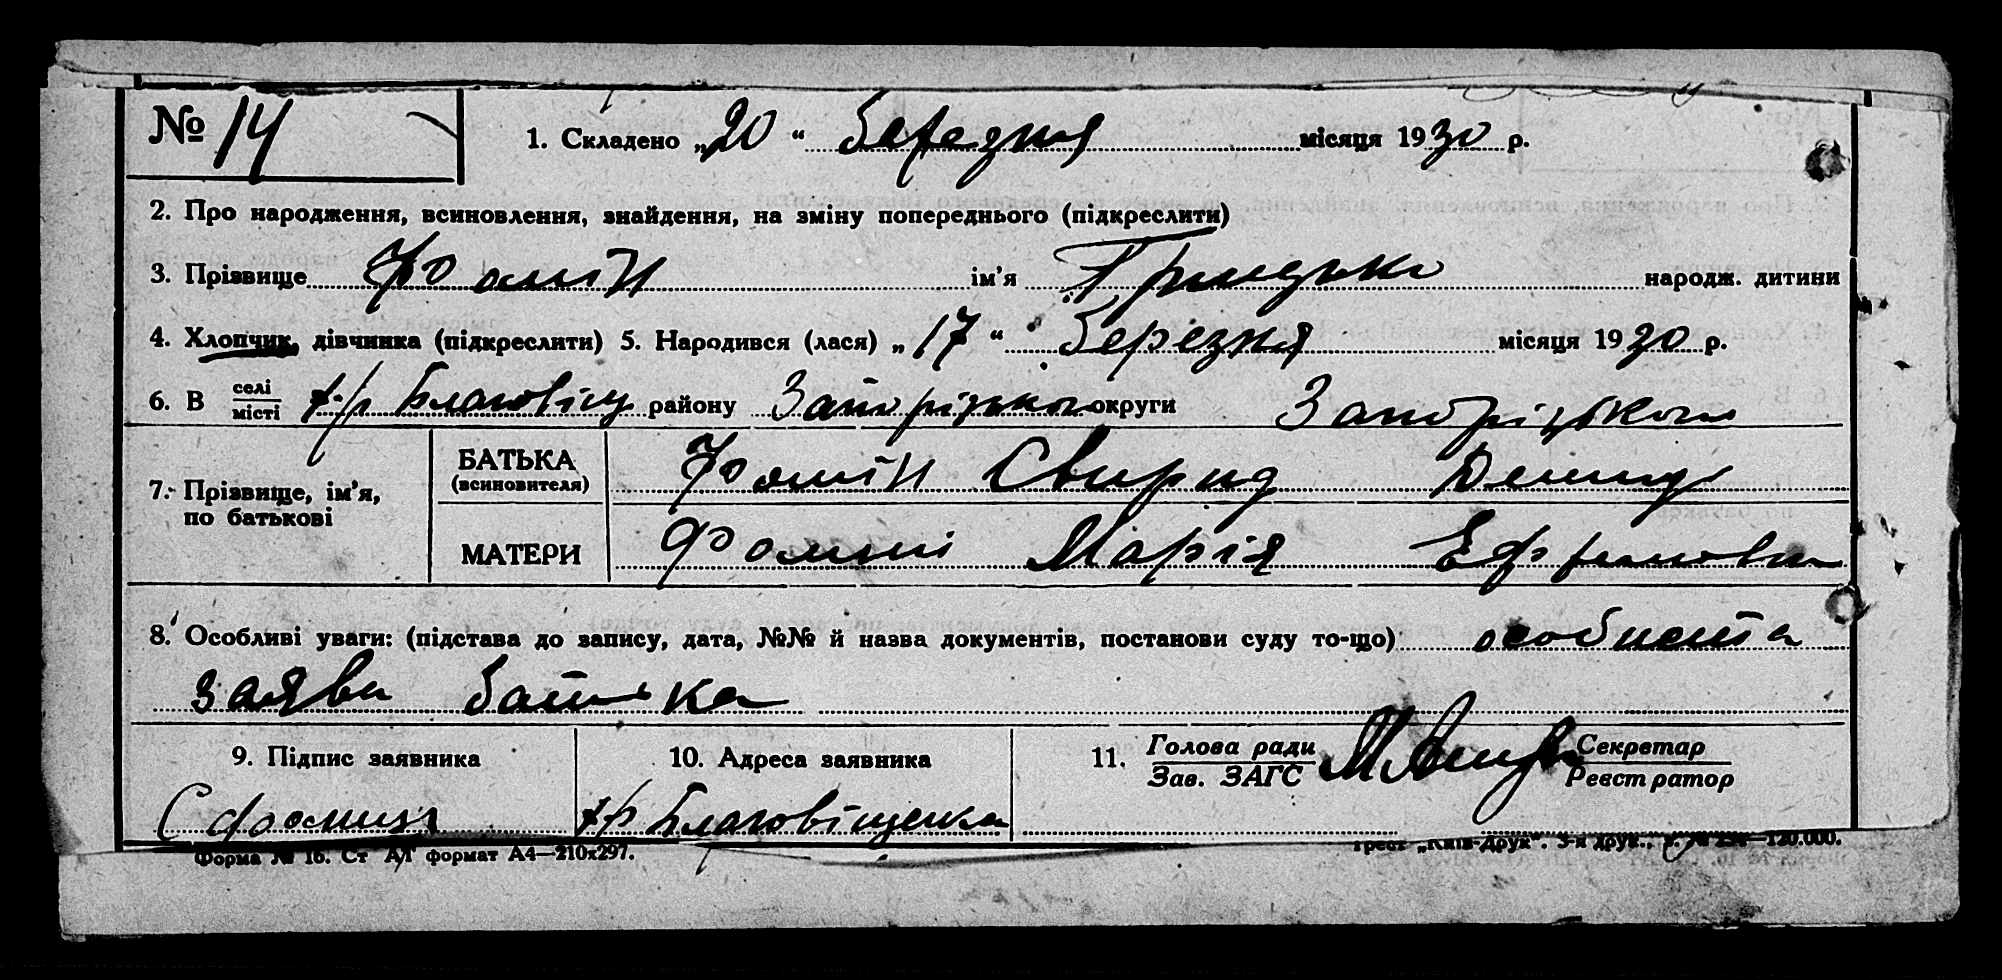 № 14
1. Складено „20“ березня місяця 1930 р.
2. Про народження, всиновлення, знайдення, на зміну попереднього (підкреслити)
3. Прізвище Фомін ім’я Грицько народж. дитини
4. Хлопчик, дівчинка (підкреслити) 5. Народився (лася) „17“ березня місяця 1930 р.
6. В селі/місті х-р Благовіщ району Запорізького округи Запорізького
7. Прізвище, ім’я, по батькові
БАТЬКА (всиновителя) Фомін Свирид
МАТЕРИ Фоміні Марія Ефрімовна
8. Особливі уваги: (підстава до запису, дата, №№ й назва документів, постанови суду то-що) особиста
заява батька
9. Підпис заявника
10. Адреса заявника
11. Голова ради / Зав. ЗАГС
Секретар / Реєстратор
С Фомин
х-р Благовіщенка
Форма № 16. Ст формат А4—210х297.
Трест „Київ-Друк“. 3-я друк., 120.000.